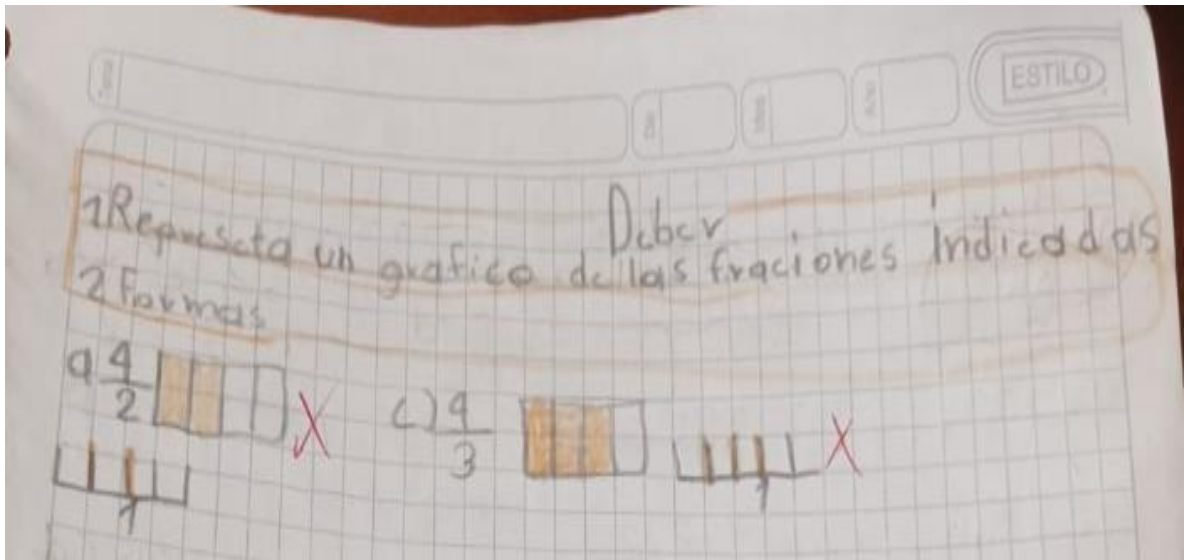 ESTILO
Deber
1Represeta un grafico de las fraciones Indicadas
2 formas
a 4/2
c) 4/3